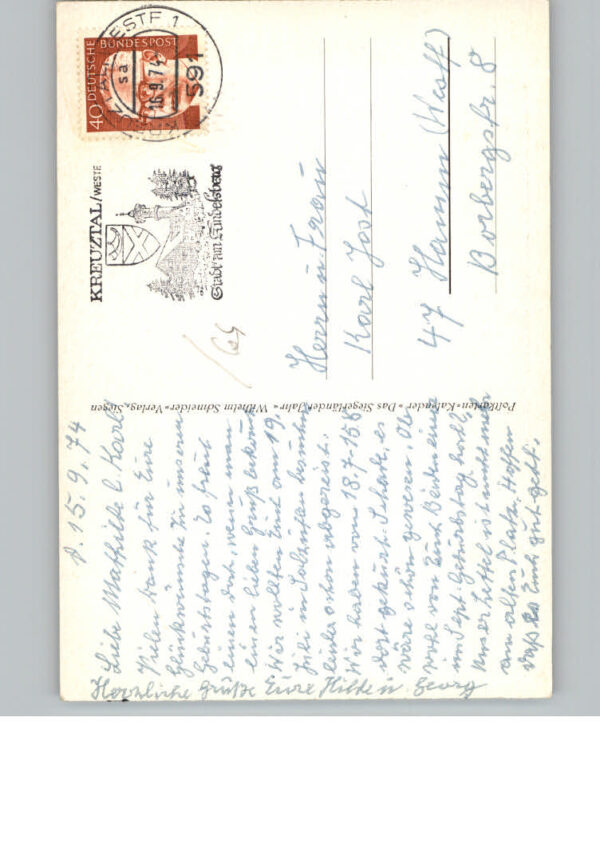 d. 15.9.74
Liebe Mathilde l. Karl,
Vielen Dank für Eure
Glückwünsche zu unseren
Geburtstagen. Es freut
einen doch, wenn man
einen lieben Gruß
Wir wollten Euch am 19.
Juli in Salzuflen besuchen
leider schon abgereist.
Wir haben vom 18.7-15.8
dort gekurt. Schade, es
wäre schön gewesen. Ob
wohl von Euch Beiden einer
im Sept. Geburtstag hat,
unser Zettel ist nicht mehr
am alten Platz. Hoffen
daß es Euch gut geht.
Herzliche Grüße Eure Hilde u. Georg
Postkarten-Kalender »Das Siegerländer Jahr« Wilhelm Schneider-Verlag, Siegen
DEUTSCHE BUNDESPOST
40
16.9.74
591
KREUZTAL/WESTF
Stadt am Kindelsberg
Herrn u. Frau
Karl Jost
47 Hamm (Westf)
Borbergstr. 8